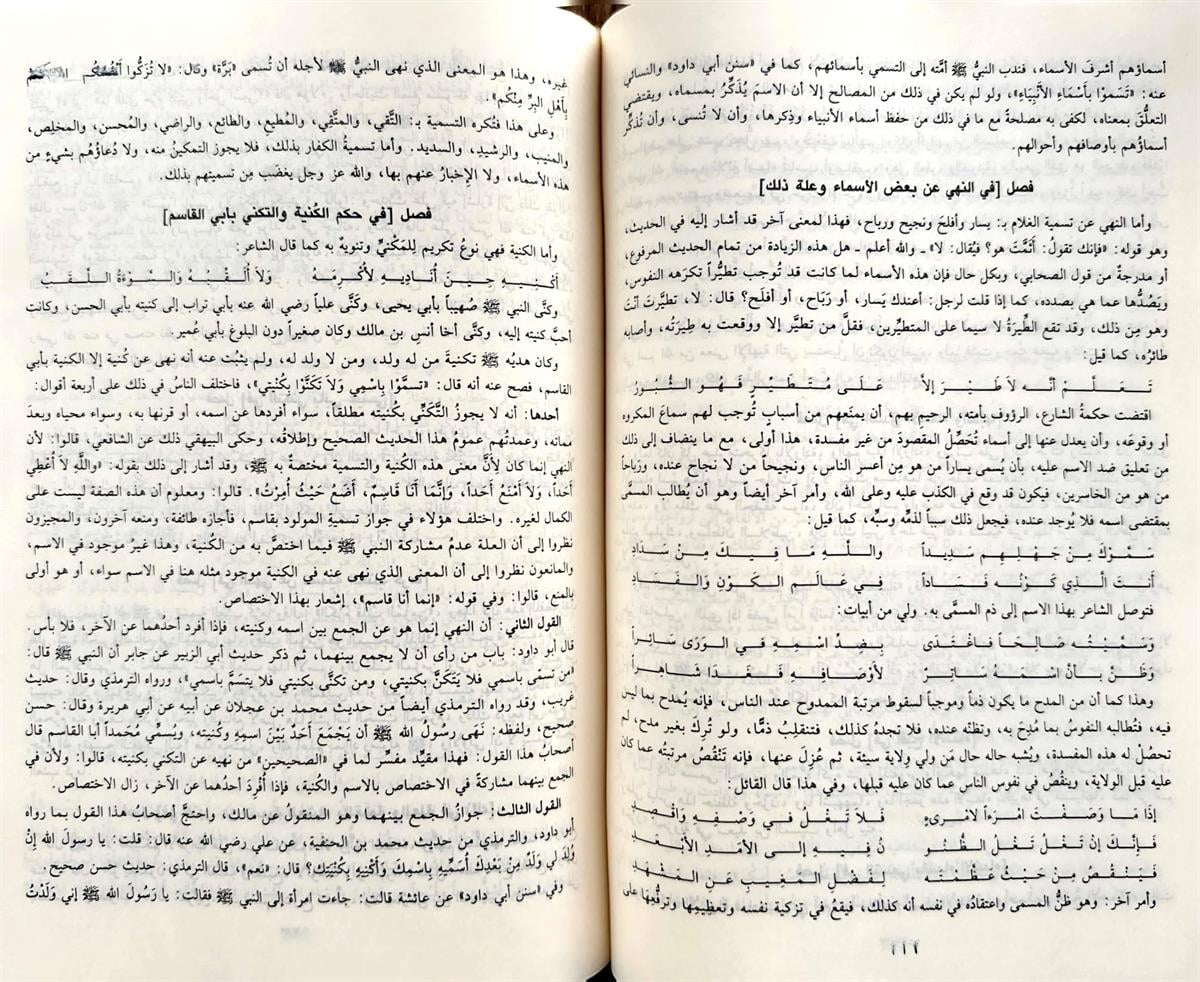 أسماؤهم أشرفَ الأسماء، فندب النبيُّ ﷺ أمَّته إلى التسمي بأسمائهم، كما في «سنن أبي داود» والنسائي
عنه: «تَسَموْا بأَسْمَاءِ الأَنْبِيَاءِ»، ولو لم يكن في ذلك من المصالح إلا أن الاسمَ يُذَكِّرُ بمسماه، ويقتضي
التعلُّقَ بمعناه، لكفى به مصلحةً مع ما في ذلك من حفظ أسماء الأنبياء وذِكرها، وأن لا تُنسى، وأن تُذكِّر
أسماؤُهم بأوصافهم وأحوالهم.
فصل [في النهي عن بعض الأسماء وعلة ذلك]
وأما النهي عن تسمية الغلام بـ: يسار وأفلحَ ونجيح ورباح، فهذا لمعنى آخر قد أشار إليه في الحديث،
وهو قوله: «فإنك تقولُ: أَثَمَّتَ هو؟ فيُقال: لا» ـ والله أعلم ـ هل هذه الزيادة من تمام الحديث المرفوع،
أو مدرجةٌ من قول الصحابي، وبكل حال فإن هذه الأسماء لما كانت قد تُوجب تطيُّراً تكرَهه النفوس،
ويَصُدُّها عما هي بصدده، كما إذا قلت لرجل: أعندك يَسار، أو رَبَاح، أو أفلَح؟ قال: لا، تطيَّرتَ أنْتَ
وهو مِن ذلك، وقد تقع الطِّيَرَةُ لا سيما على المتطيِّرين، فقلَّ من تطيَّر إلا ووقعت به طِيرَتُه، وأصابه
طائرُه، كما قيل:
تَعَلَّمْ أنَّه لاَ طَيْرَ إلاَّ عَلَى مُتَطَيِّرٍ فَهُوَ الثُّبُورُ
اقتضت حكمةُ الشارع، الرؤوف بأمته، الرحيمِ بهم، أن يمنَعهم من أسبابٍ تُوجب لهم سماعَ المكروه
أو وقوعَه، وأن يعدل عنها إلى أسماء تُحَصِّلُ المقصودَ من غير مفسدة، هذا أولى، مع ما ينضاف إلى ذلك
من تعليق ضد الاسم عليه، بأن يُسمى يساراً من هو مِن أعسر الناس، ونجيحاً من لا نجاح عنده، ورَبَاحاً
من هو من الخاسرين، فيكون قد وقع في الكذب عليه وعلى الله، وأمر آخر أيضاً وهو أن يُطالب المسمَّى
بمقتضى اسمه فلا يُوجد عنده، فيجعل ذلك سبباً لذمِّه وسبِّه، كما قيل:
سَمَّوْكَ مِنْ جَهْلِهِم سَدِيداً واللَّهِ مَا فِيكَ مِنْ سَدَادِ
أَنتَ الَّذِي كَوْنُه فَسَاداً فِي عَالَمِ الكَوْنِ وَالفَسَادِ
فتوصل الشاعر بهذا الاسم إلى ذم المسمَّى به. ولي من أبيات:
وَسَمَّيْتُه صَالِحَاً فاغْتَدَى بِضِدِّ اسْمِهِ في الوَرَى سَائِراً
وَظَنَّ بأنَّ اسْمَهُ سَاتِرٌ لأَوْصَافِهِ فَغَدَا شَاهِراً
وهذا كما أن من المدح ما يكون ذماً وموجباً لسقوط مرتبة الممدوح عند الناس، فإنه يُمدح بما ليس
فيه، فتُطالبه النفوسُ بما مُدِحَ به، وتظنُّه عنده، فلا تجدهُ كذلك، فتنقلِبُ ذمًّا، ولو تُرِكَ بغير مدح، لم
تحصُلْ له هذه المفسدة، ويُشبه حاله حال مَن ولي وِلاية سيئة، ثم عُزِلَ عنها، فإنه تَنْقُصُ مرتبتُه عما كان
عليه قبل الولاية، وينقُصُ في نفوس الناس عما كان عليه قبلها، وفي هذا قال القائل:
إذَا مَا وَصَفْتَ امْرَءاً لامْرِىءٍ فَلاَ تَغْلُ في وَصْفِهِ وَاقْصِدِ
فَإِنَّكَ إنْ تَغْلُ تَغْلُ الظُّنُو نُ فِيهِ إلى الأمَدِ الأَبْعَدِ
فَيَنْقُصُ مِنْ حَيْثُ عَظَّمْتَه لِفَضْلِ المَغِيبِ عَنِ المَشْهَدِ
وأمر آخر: وهو ظنُّ المسمى واعتقادُه في نفسه أنه كذلك، فيقعُ في تزكية نفسه وتعظِيمِها وترفُّعِها على
٣١٢
غيره، وهذا هو المعنى الذي نهى النبيُّ ﷺ لأجله أن تُسمى «بَرَّة» وقال: «لا تُزَكُّوا أَنْفُسَكُم
بِأَهْلِ البِرِّ مِنْكُم».
وعلى هذا فتُكره التسمية بـ: التَّقي، والمتَّقِي، والمُطيعِ، والطائع، والراضي، والمُحسن، والمخلِص،
والمنيب، والرشيدِ، والسديد. وأما تسميةُ الكفار بذلك، فلا يجوز التمكينُ منه، ولا دُعاؤُهم بشيءٍ من
هذه الأسماء، ولا الإخبارُ عنهم بها، والله عز وجل يغضَب مِن تسميتهم بذلك.
فصل [في حكم الكُنية والتكني بأبي القاسم]
وأما الكنية فهي نوعُ تكريم لِلمَكْنيِّ وتنويةٌ به كما قال الشاعر:
أَكْنِيهِ حِينَ أُنَادِيهِ لأُكْرِمَهُ وَلاَ أُلَقِّبُهُ وَالسَّوْءَةُ اللَّقَبُ
وكنَّى النبي ﷺ صُهيباً بأبي يحيى، وكَنَّى علياً رضي الله عنه بأبي تراب إلى كنيته بأبي الحسن، وكانت
أحبَّ كنيته إليه، وكنَّى أخا أنسِ بن مالك وكان صغيراً دون البلوغ بأبي عُمير.
وكان هديُه ﷺ تكنيةَ من له ولد، ومن لا ولد له، ولم يثبُت عنه أنه نهى عن كُنية إلا الكنية بأبي
القاسم، فصح عنه أنه قال: «تسمَّوْا بِاسْمِي وَلاَ تَكَنَّوْا بِكُنْيَتِي»، فاختلف الناسُ في ذلك على أربعة أقوال:
أحدها: أنه لا يجوزُ التَّكَنِّي بكُنيته مطلقاً، سواء أفردها عن اسمه، أو قرنها به، وسواء محياه وبعدَ
مماته، وعمدتُهم عمومُ هذا الحديث الصحيح وإطلاقُه، وحكى البيهقي ذلك عن الشافعي، قالوا: لأن
النهي إنما كان لِأنَّ معنى هذه الكُنية والتسمية مختصةٌ به ﷺ، وقد أشار إلى ذلك بقوله: «واللَّهِ لاَ أُعْطِي
أَحَداً، وَلاَ أَمْنَعُ أَحَداً، وَإِنَّمَا أَنَا قَاسِمٌ، أَضَعُ حَيْثُ أُمِرْتُ». قالوا: ومعلوم أن هذه الصفة ليست على
الكمال لغيره. واختلف هؤلاء في جواز تسميةِ المولود بقاسم، فأجازه طائفة، ومنعه آخرون، والمجيزون
نظروا إلى أن العلة عدمُ مشاركة النبي ﷺ فيما اختصَّ به من الكُنية، وهذا غيرُ موجود في الاسم،
والمانعون نظروا إلى أن المعنى الذي نهى عنه في الكنية موجود مثله هنا في الاسم سواء، أو هو أولى
بالمنع، قالوا: وفي قوله: «إنما أنا قاسم»، إشعار بهذا الاختصاص.
القول الثاني: أن النهي إنما هو عن الجمع بين اسمه وكنيته، فإذا أفرد أحدُهما عن الآخر، فلا بأس.
قال أبو داود: باب من رأى أن لا يجمع بينهما، ثم ذكر حديث أبي الزبير عن جابر أن النبي ﷺ قال:
«من تسمَّى باسمي فلا يَتَكَنَّ بكنيتي، ومن تكنَّى بكنيتي فلا يتسَمَّ باسمي»، ورواه الترمذي وقال: حديث
غريب، وقد رواه الترمذي أيضاً من حديث محمد بن عجلان عن أبيه عن أبي هريرة وقال: حسن
صحيح، ولفظه: نَهَى رسُولُ الله ﷺ أن يَجْمَعَ أحَدٌ بَيْنَ اسمِهِ وكُنيته، ويُسمِّي مُحَمداً أبا القاسم قال
أصحابُ هذا القول: فهذا مقيِّد مفسِّر لما في «الصحيحين» من نهيه عن التكني بكنيته، قالوا: ولأن في
الجمع بينهما مشاركةً في الاختصاص بالاسم والكُنية، فإذا أُفْرِدَ أحدُهما عن الآخر، زال الاختصاص.
القول الثالث: جوازُ الجمع بينهما وهو المنقولُ عن مالك، واحتجَّ أصحابُ هذا القول بما رواه
أبو داود، والترمذي من حديث محمد بن الحنفية، عن علي رضي الله عنه قال: قلت: يا رسولَ الله إنْ
وُلِدَ لي وَلَدٌ مِنْ بَعْدِكَ أُسَمِّيهِ بِاسْمِكَ وَأَكْنِيهِ بِكُنْيَتِكَ؟ قال: «نعم»، قال الترمذي: حديث حسن صحيح.
وفي «سنن أبي داود» عن عائشة قالت: جاءت امرأة إلى النبي ﷺ فقالت: يا رَسُولَ الله ﷺ إني وَلَدْتُ